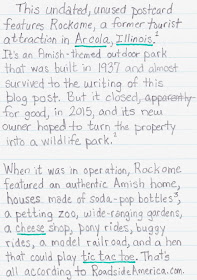 This undated, unused postcard
features Rockome, a former tourist
attraction in Arcola, Illinois.¹
It's an Amish-themed outdoor park
that was built in 1937 and almost
survived to the writing of this
blog post. But it closed, apparently
for good, in 2015, and its new
owner hoped to turn the property
into a wildlife park.²
When it was in operation, Rockome
featured an authentic Amish home,
houses made of soda-pop bottles³,
a petting zoo, wide-ranging gardens,
a cheese shop, pony rides, buggy
rides, a model railroad, and a hen
that could play tic tac toe. That's
all according to RoadsideAmerica.com.